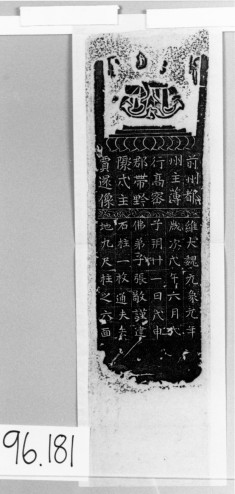 前州都
州主薄
行高密
郡帶黔
陬太主
維大魏元象元年
歲次戊午六月戊
子朔廿一日戊申
佛弟子張敬謹建
石柱一枚通夫去
地九尺柱之六面
96.181